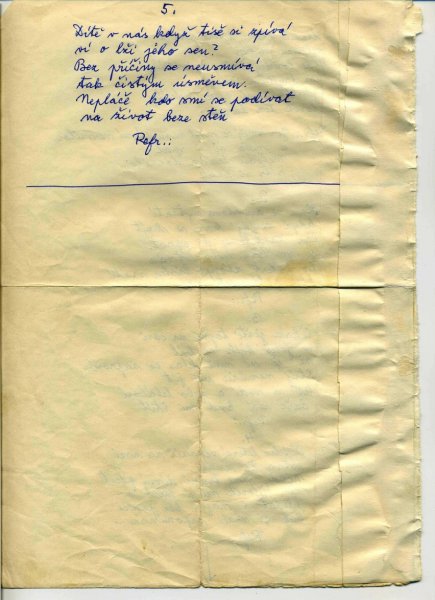 5.
Dítě v nás když tiše si zpívá
ví o lži jeho sen?
Bez příčiny se neusmívá
tak čistým úsměvem.
Nepláče kdo smí se podívat
na život beze stěn
Refr.: